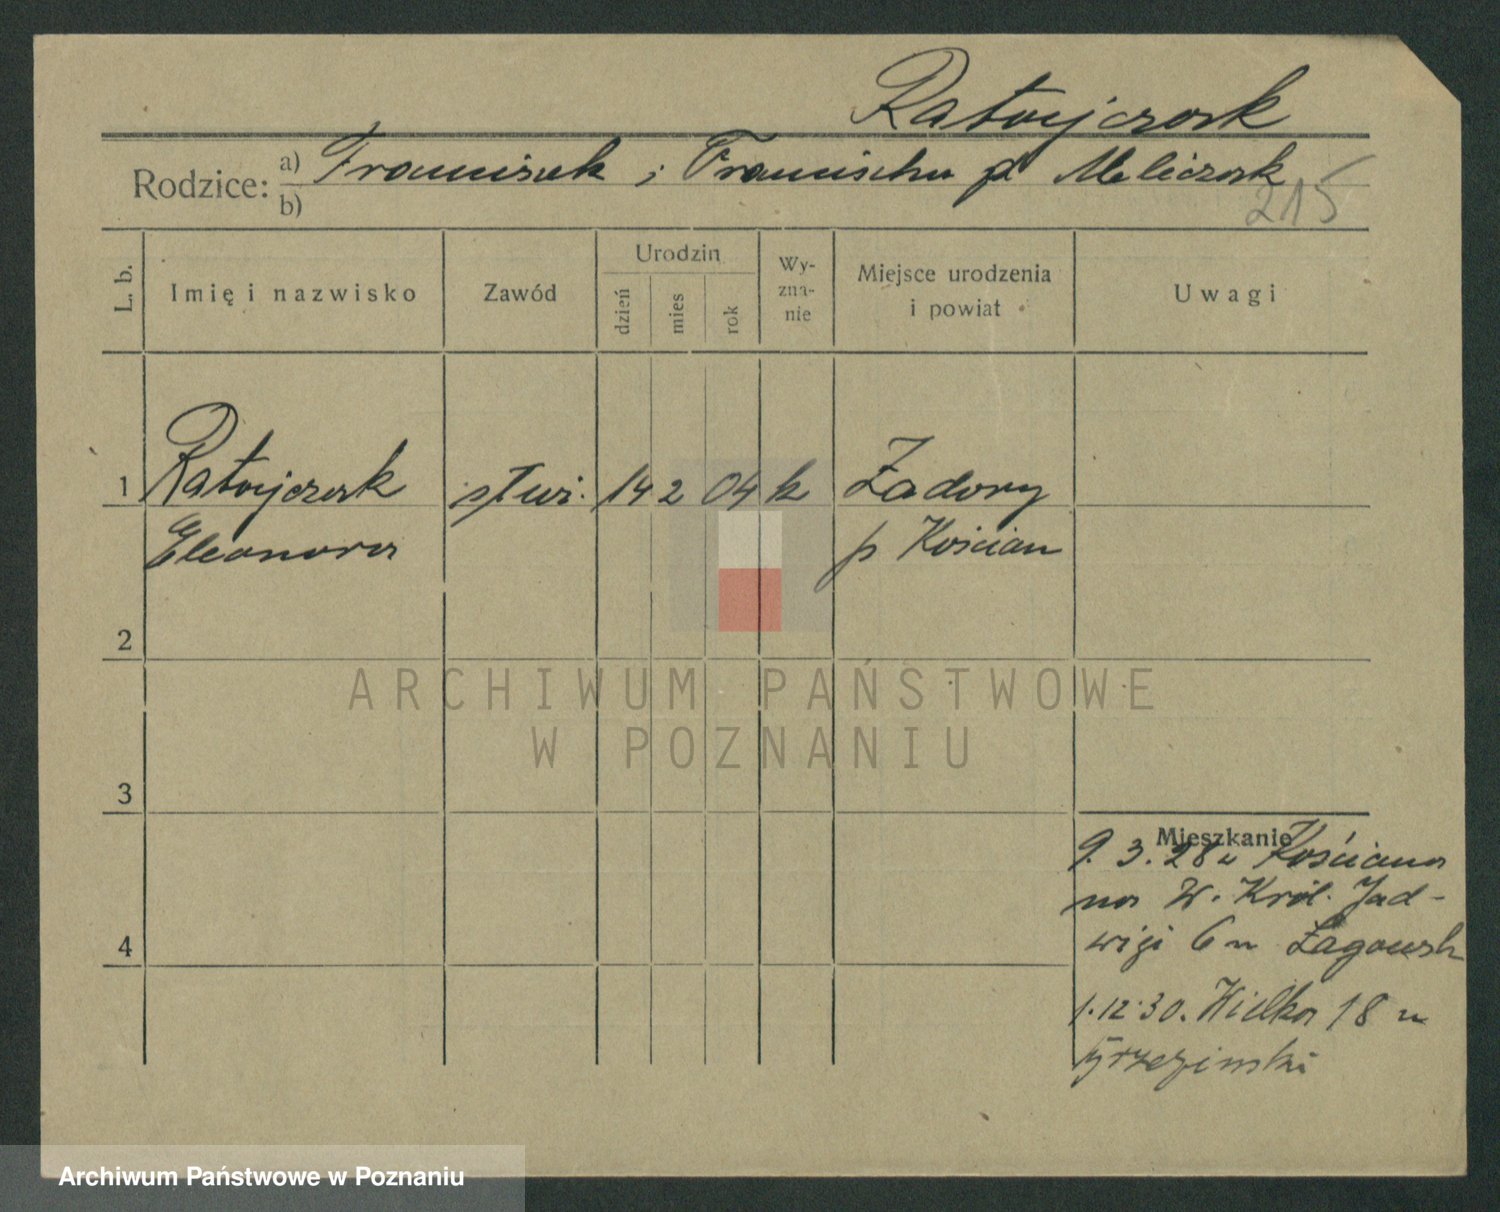 Ratajczak
Rodzice: a) Franciszek i Franciszka p Meliczak
b)
215
L. b.
Imię i nazwisko
Zawód
Urodzin
dzień
mies
rok
Wy-
zna-
nie
Miejsce urodzenia
i powiat
Uwagi
1 Ratajczak 14 2 04 k Zadory
Eleonora p Kościan
2
ARCHIWUM PAŃSTWOWE
W POZNANIU
3
Mieszkanie
9. 3. 28 z Kościana
na W. Król. Jad-
4
wigi 6 u Żagowsk
1.12.30. Wielka 18 u
Archiwum Państwowe w Poznaniu